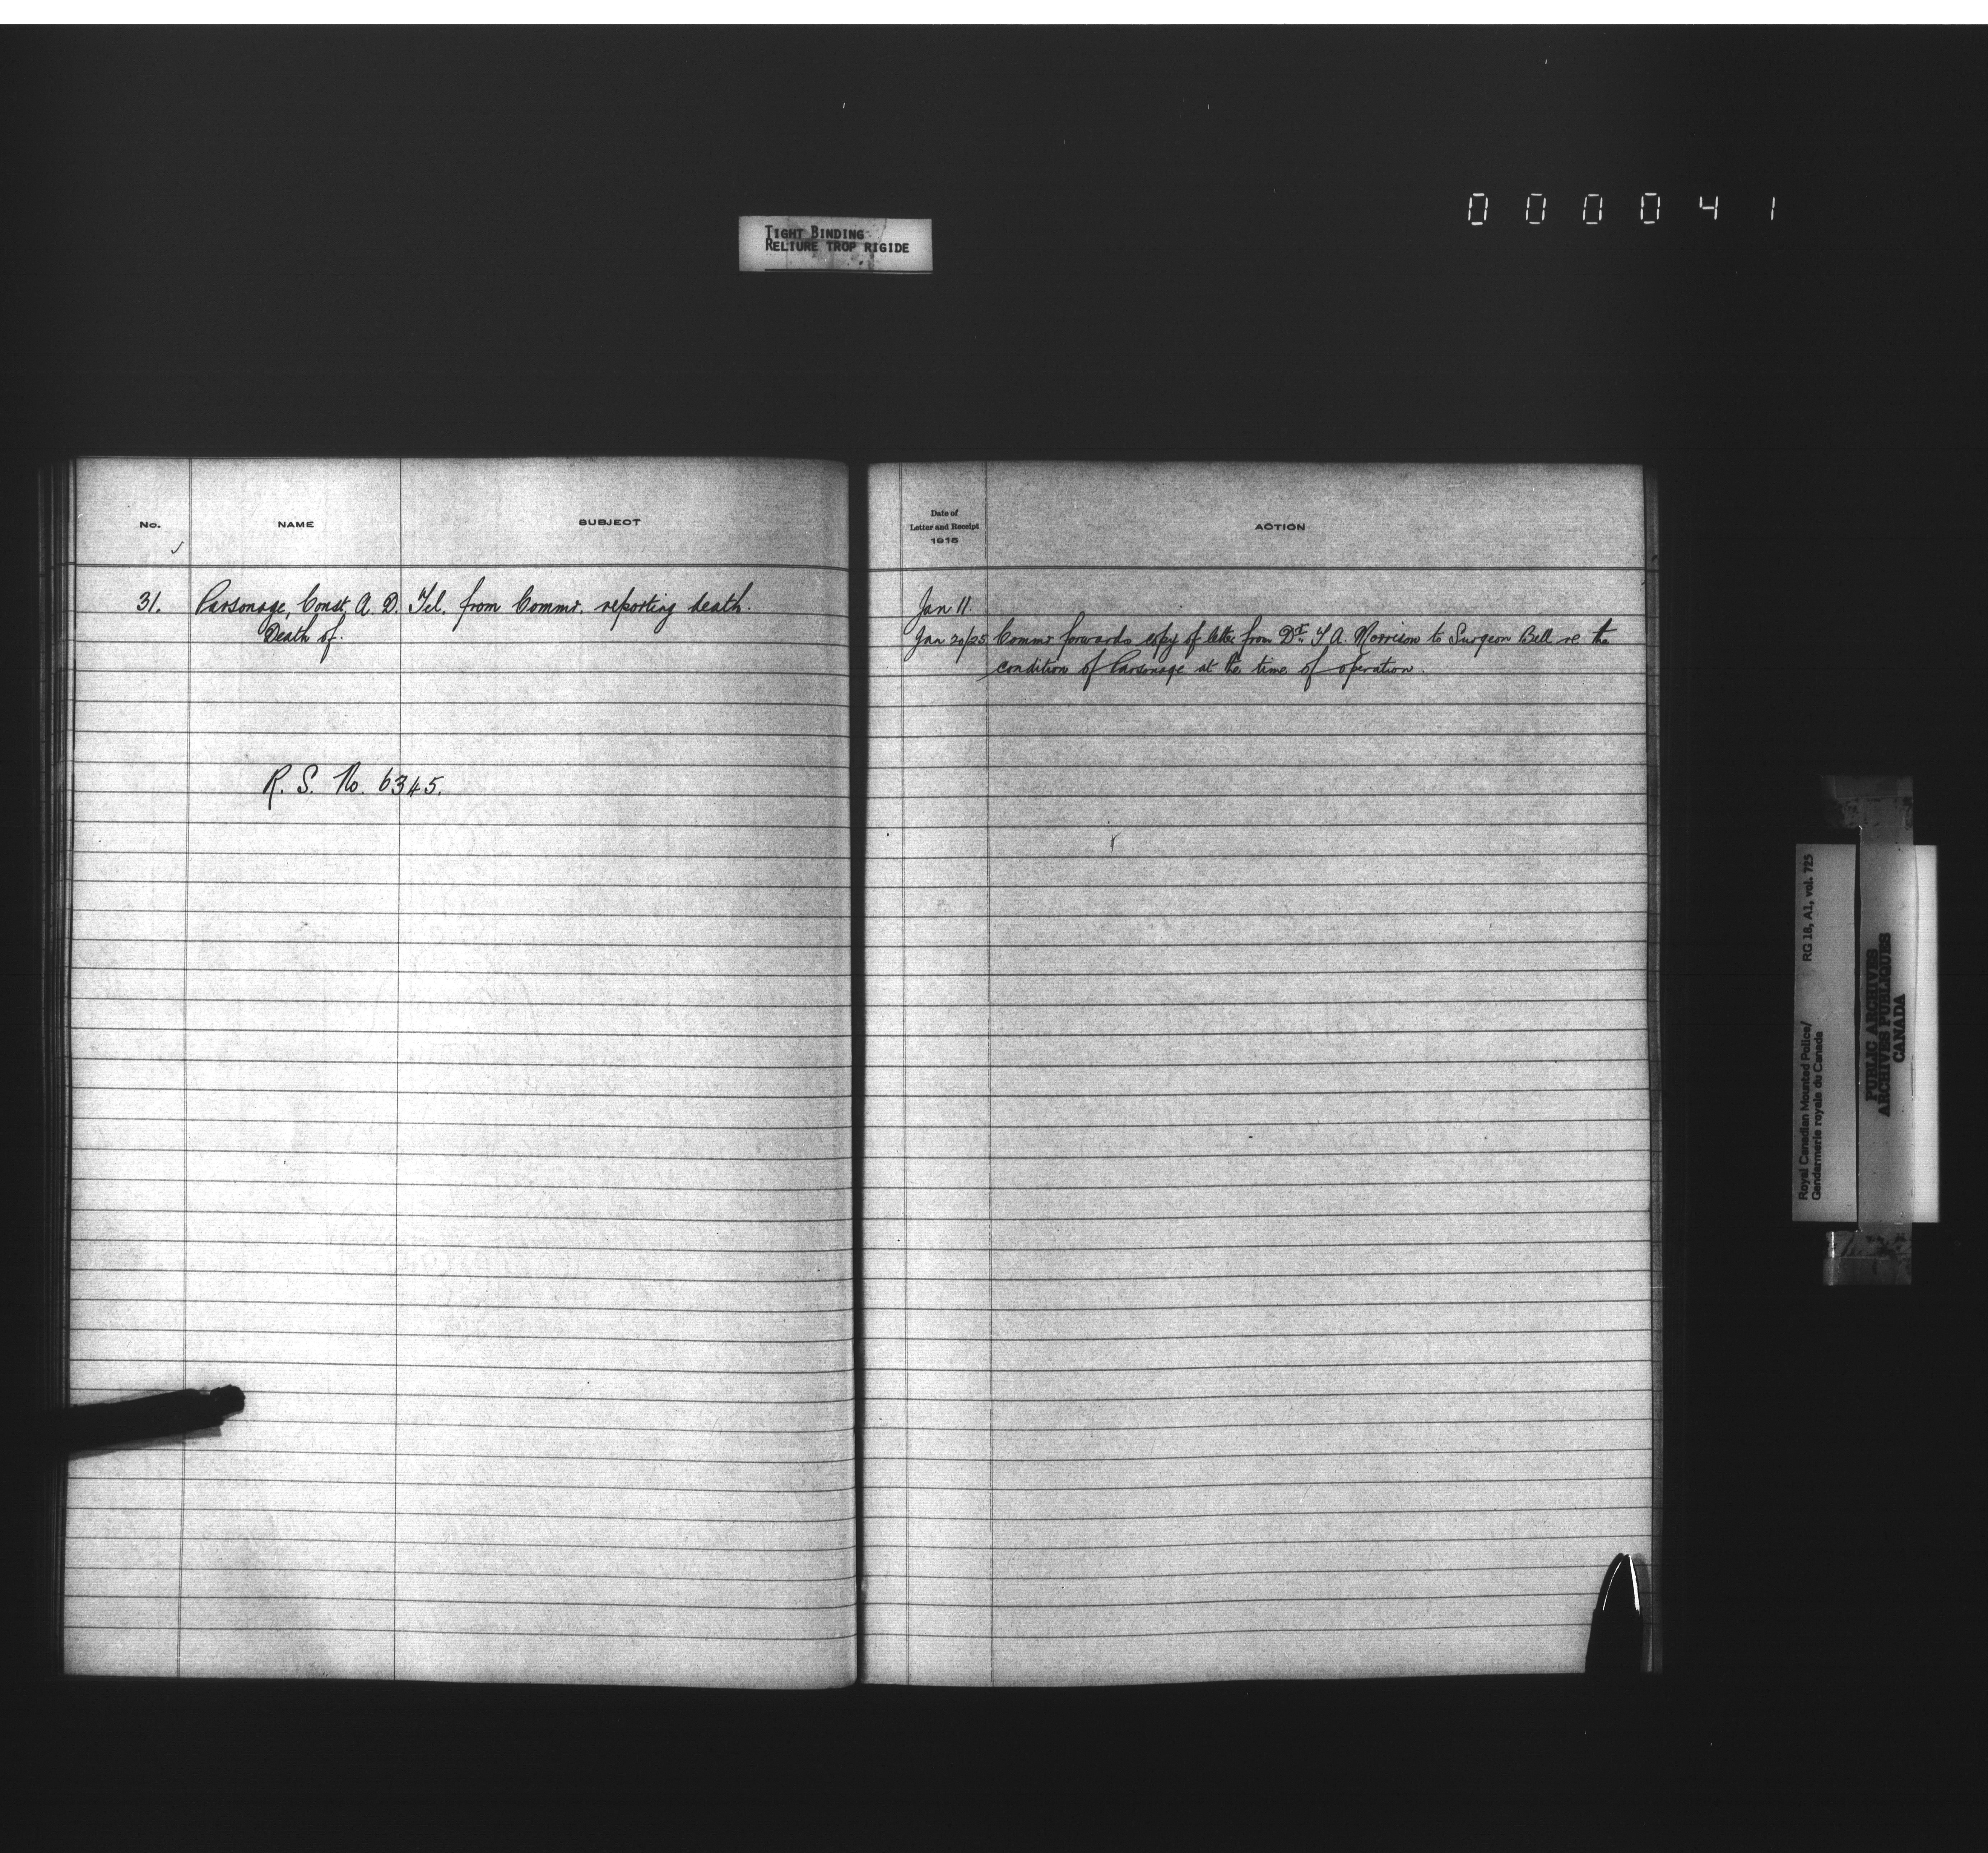 000041
TIGHT BINDING
RELIURE TROP RIGIDE
No.
NAME
SUBJECT
31. Parsonage, Const. A. D. Tel. from Commr. reporting death.
Death of.
R. S. No. 6345.
Date of
Letter and Receipt
1915
ACTION
Jan 11.
Jan 20/25 Commr forwards copy of letter from Dr. T A. Morrison to Surgeon Bell re the
condition of Parsonage at the time of operation.
Royal Canadian Mounted Police/ RG 18, A1, vol. 725
Gendarmerie royale du Canada
PUBLIC ARCHIVES
ARCHIVES PUBLIQUES
CANADA